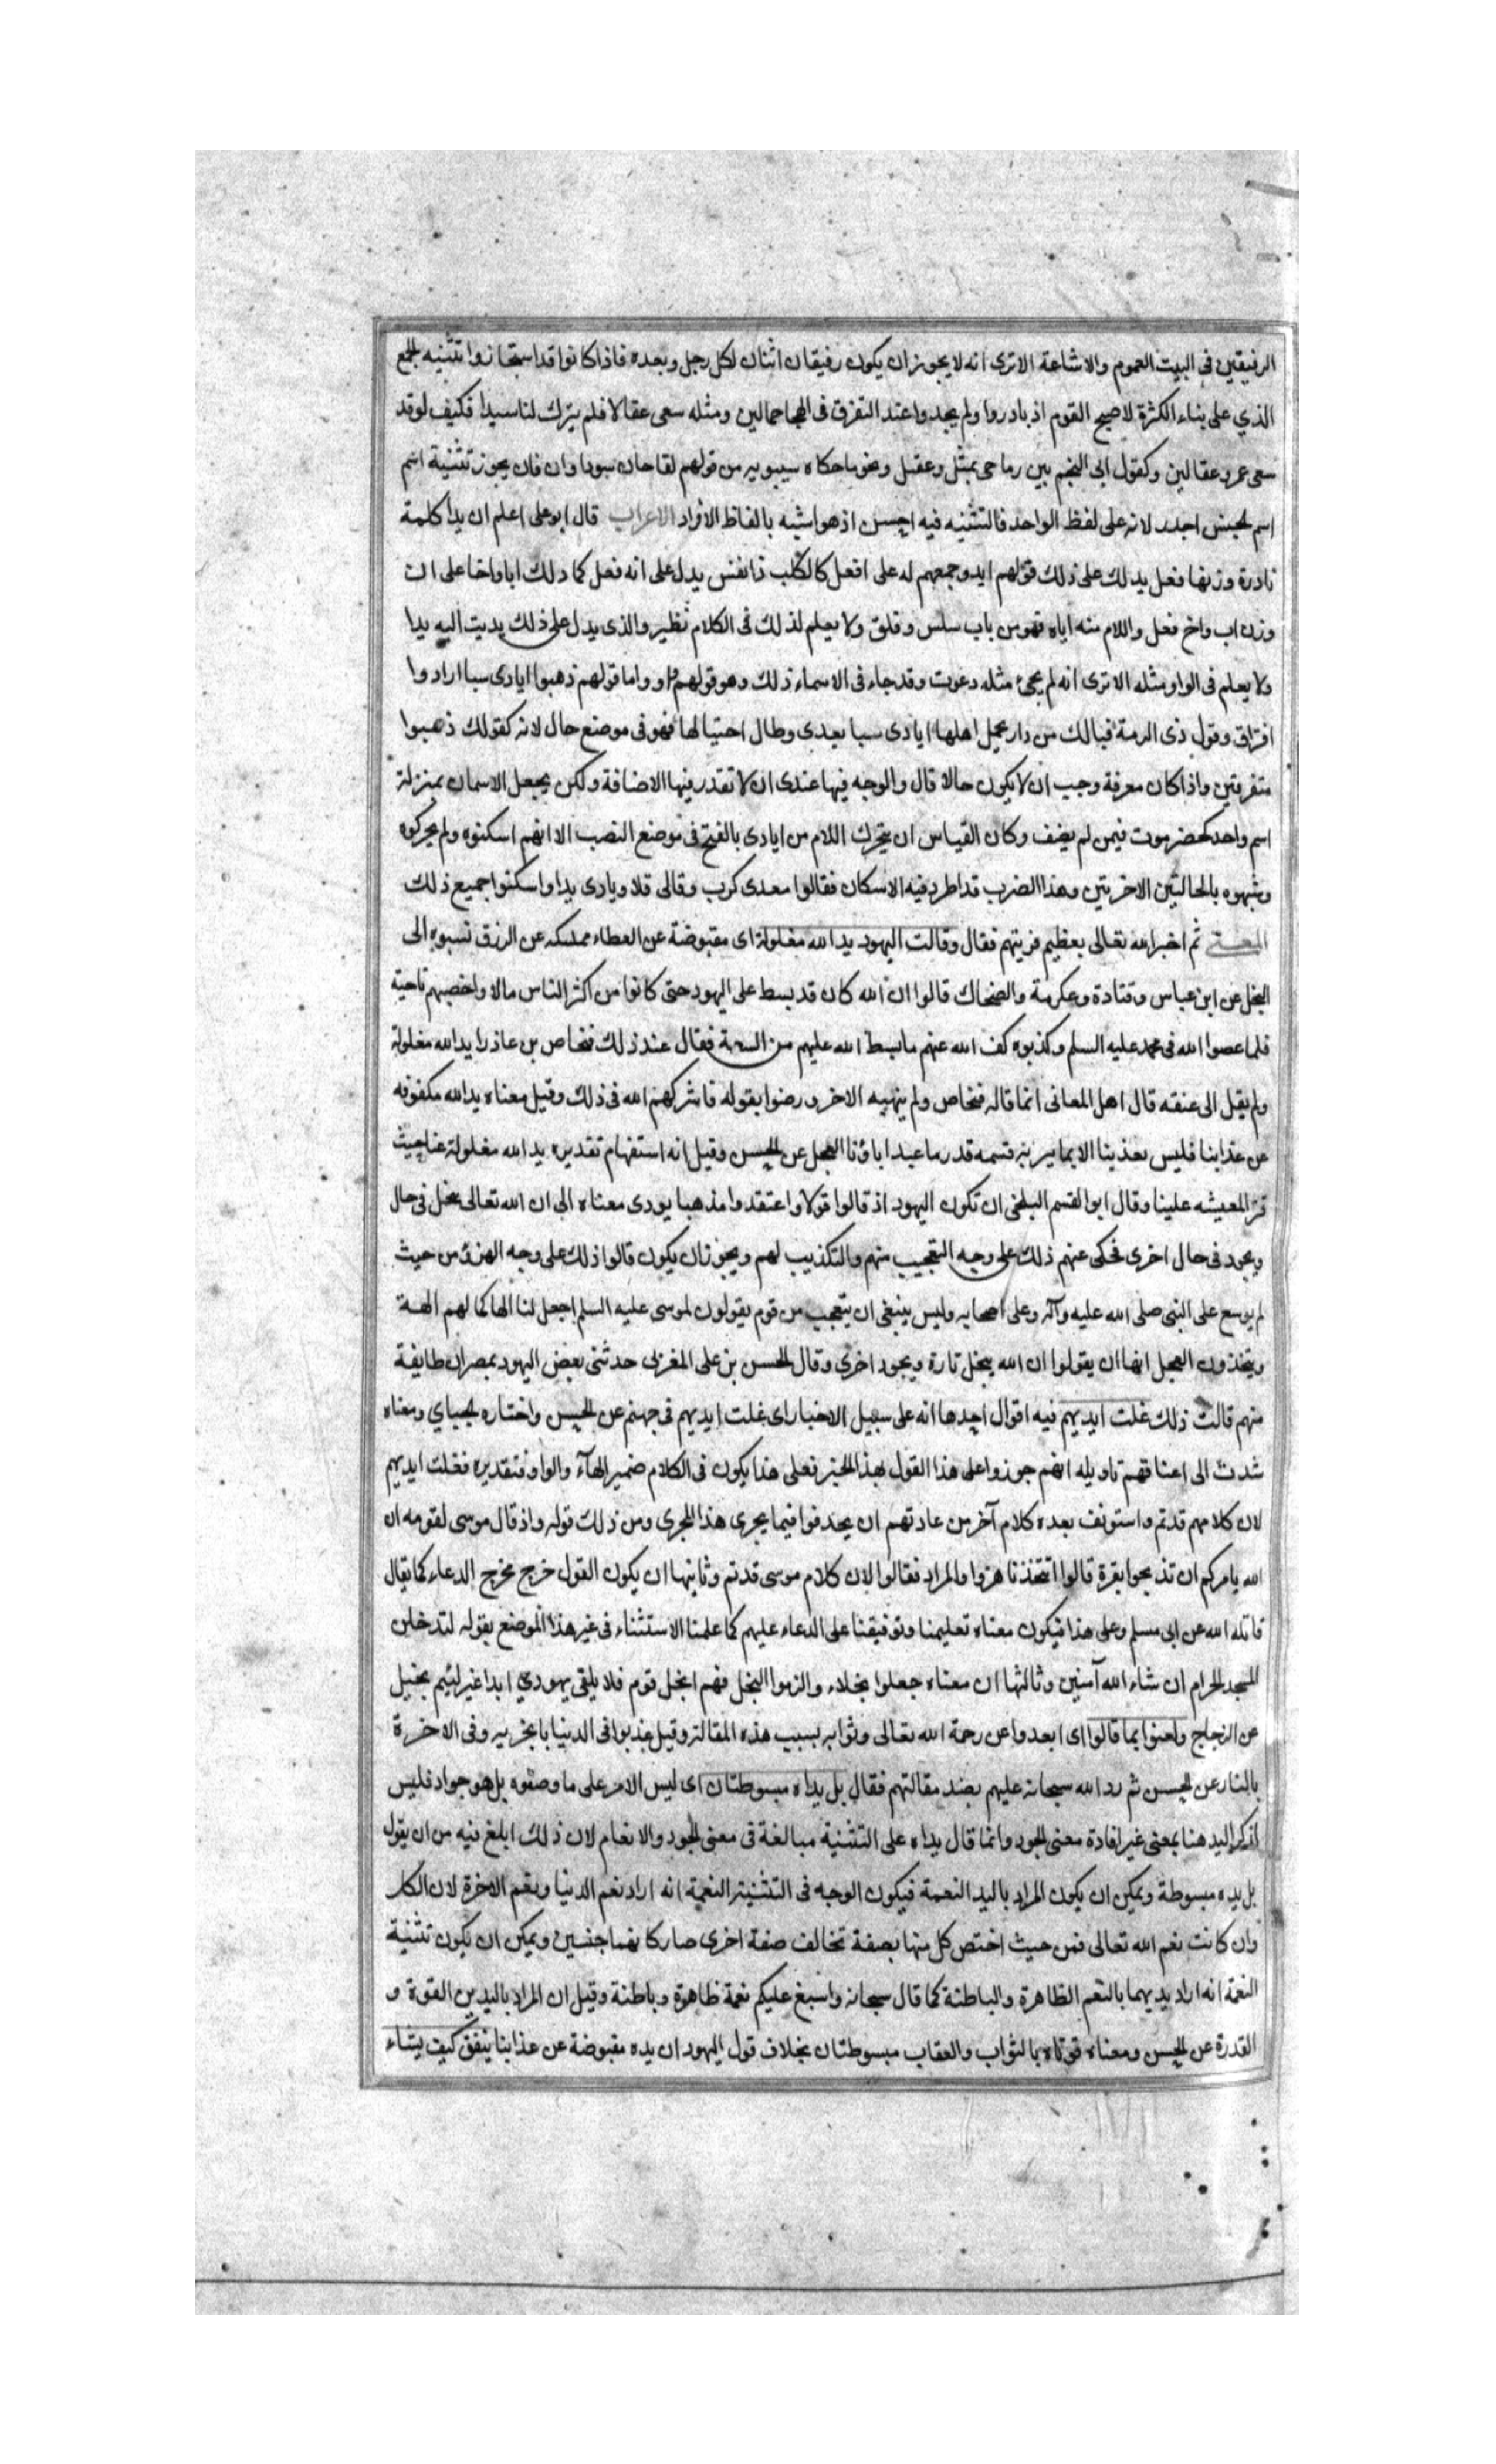 الرفيقين فى البيت العموم والاشاعة الاترى انه لا يجوز ان يكون رفيقان اثنان لكل رجل وبعده فاذا كانوا قد استجازوا تثنيه الجمع
الذي على بناء الكثرة لاصبح القوم اذ بادروا ولم يجدوا عند التفرق فى الهيجا جمالين ومثله سعى عقالا فلم يترك لنا سبدا فكيف لو قد
سعى عمرو عقالين وكقول ابى النجم بين رماحى نهشل وعقيل ونحو ما حكاه سيبويه من قولهم لقاحان سودا وان فان يجوز تثنية اسم
اسم لجنس اجدر لانه على لفظ الواحد فالتثنيه فيه احسن اذ هو اشبه بالفاظ الافراد الاعراب قال ابو على اعلم ان يدا كلمة
نادرة وزنها فعل يدلك على ذلك قولهم ايد وجمعهم له على افعل كاكلب وانفس يدل على انه فعل كما دلك اباء واخاء على ان
وزن اب واخ فعل واللام منه اياه فهو من باب سلس وقلق ولا يعلم لذلك فى الكلام نظير والذى يدل على ذلك يديت اليه يدا
ولا يعلم فى الواو مثله الاترى انه لم يجئ مثله دعوت وقد جاء فى الاسماء ذلك وهو قولهم واو واما قولهم ذهبوا ايادى سبا ارادوا
افتراق وقول ذى الرمة فيالك من دار تحمل اهلها ايادى سبا بعدى وطال احتيالها فهو فى موضع حال لانه كقولك ذهبوا
متفرقين واذا كان معرفة وجب ان لا يكون حالا قال والوجه فيها عندى ان لا تقدر فيها الاضافة ولكن يجعل الاسمان بمنزلة
اسم واحد كحضرموت فيمن لم يضف وكان القياس ان يتحرك اللام من ايادى بالفتح فى موضع النصب الا انهم اسكنوه ولم يحركوه
وشبهوه بالحالتين الاخريين وهذا الضرب قد اطرد فيه الاسكان فقالوا معدى كرب وقالى قلا وبادى بدا واسكنوا جميع ذلك
المعنى ثم اخبر الله تعالى بعظيم فريتهم فقال وقالت اليهود يد الله مغلولة اى مقبوضة عن العطاء ممسكه عن الرزق نسبوه الى
البخل عن ابن عباس وقتادة وعكرمة والضحاك قالوا ان الله كان قد بسط على اليهود حتى كانوا من اكثر الناس مالا واخصبهم ناحية
فلما عصوا الله فى محمد عليه السلم وكذبوه كف الله عنهم ما بسط الله عليهم من السعة فقال عند ذلك فنحاص بن عازورا يد الله مغلولة
ولم يقل الى عنقه قال اهل المعانى انما قاله فنحاص ولم ينهه الاخرون ورضوا بقوله فاشركهم الله فى ذلك وقيل معناه يد الله مكفوفه
عن عذابنا فليس يعذبنا الا بما يبر به قسمه قدر ما عبد اباؤنا العجل عن الحسن وقيل انه استفهام تقديره يد الله مغلولة عنا حيث
قتر المعيشه علينا وقال ابو القسم البلخى ان تكون اليهود اذ قالوا قولا واعتقدوا مذهبا يودى معناه الى ان الله تعالى بخل فى حال
ويجود فى حال اخرى فحكى عنهم ذلك على وجه التعجيب منهم والتكذيب لهم ويجوز ان يكون قالوا ذلك على وجه الهزؤ من حيث
لم يوسع على النبى صلى الله عليه وآله وعلى اصحابه وليس ينبغى ان يتعجب من قوم يقولون لموسى عليه السلم اجعل لنا الها كما لهم الهة
ويتخذون العجل الها ان يقولوا ان الله يبخل تارة ويجود اخرى وقال الحسن بن على المغربى حدثنى بعض اليهود بمصر ان طايفة
منهم قالت ذلك غلت ايديهم فيه اقوال احدها انه على سبيل الاخبار اى غلت ايديهم فى جهنم عن الحسن واختاره الجباي ومعناه
شدت الى اعناقهم تاويله انهم جوزوا على هذا القول بهذا الجزا فعلى هذا يكون فى الكلام ضمير الهآء والواو فتقديره فغلت ايديهم
لان كلامهم قد تم واستونف بعده كلام آخر من عادتهم ان يحذفوا فيما يجرى هذا المجرى ومن ذلك قوله واذ قال موسى لقومه ان
الله يامركم ان تذبحوا بقرة قالوا اتتخذنا هزوا والمراد فقالوا لان كلام موسى قد تم وثانيها ان يكون القول خرج مخرج الدعاء كما يقال
قاتله الله عن ابى مسلم وعلى هذا فيكون معناه تعليمنا وتوفيقنا على الدعاء عليهم كما علمنا الاستثناء فى غير هذا الموضع بقوله لتدخلن
المسجد الحرام ان شاء الله آمنين وثالثها ان معناه جعلوا بخلاء والزموا البخل فهم ابخل قوم فلا يلقى يهودي ابدا غير لئيم بخيل
عن الزجاج ولعنوا بما قالوا اى ابعدوا عن رحمة الله تعالى وثوابه بسبب هذه المقالة وقيل عذبوا فى الدنيا بالجزيه وفى الاخرة
بالنار عن الحسن ثم رد الله سبحانه عليهم بضد مقالتهم فقال بل يداه مبسوطتان اى ليس الامر على ما وصفوه بل هو جواد فليس
لذكر اليد هنا بمعنى غير افادة معنى الجود وانما قال يداه على التثنية مبالغة فى معنى الجود والانعام لان ذلك ابلغ فيه من ان يقول
بل يده مبسوطة ويمكن ان يكون المراد باليد النعمة فيكون الوجه فى التثنيه النعمة انه اراد نعم الدنيا ونعم الاخرة لان الكل
وان كانت نعم الله تعالى فمن حيث اختص كل منها بصفة تخالف صفة اخرى صار كانهما جنسين ويمكن ان يكون تثنية
النعمة انه اراد بديهما بالنعم الظاهرة والباطنة كما قال سبحانه واسبغ عليكم نعمة ظاهرة وباطنة وقيل ان المراد باليدين القوة و
القدرة عن الحسن ومعناه قوتاه بالثواب والعقاب مبسوطتان بخلاف قول اليهود ان يده مقبوضة عن عذابنا ينفق كيف يشاء